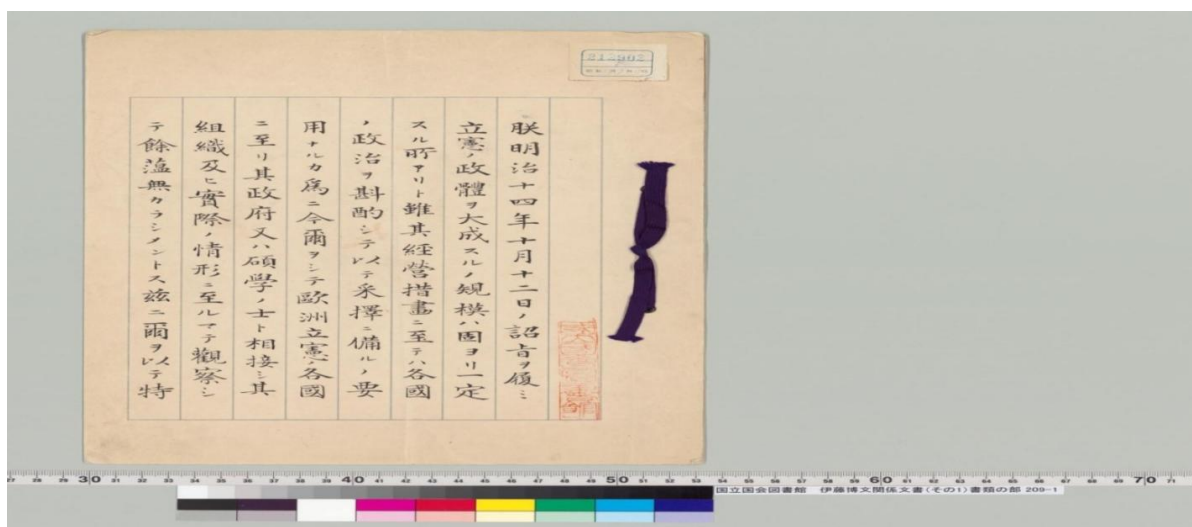 朕明治十四年十月十二日ノ詔旨ヲ履ミ
立憲ノ政體ヲ大成スルノ規模ハ固ヨリ一定
スル所アリト雖其經營措畫ニ至テハ各國
ノ政治ヲ斟酌シテ以テ采擇ニ備ルノ要
用ナルカ爲ニ今爾ヲシテ歐洲立憲ノ各國
ニ至リ其政府又ハ碩學ノ士ト相接シ其
組織及ヒ實際ノ情形ニ至ルマテ觀察シ
テ餘蘊無カラシメントス茲ニ爾ヲ以テ特
30 40 50 60 70
国立国会図書館 伊藤博文関係文書(その1)書類の部 209-1